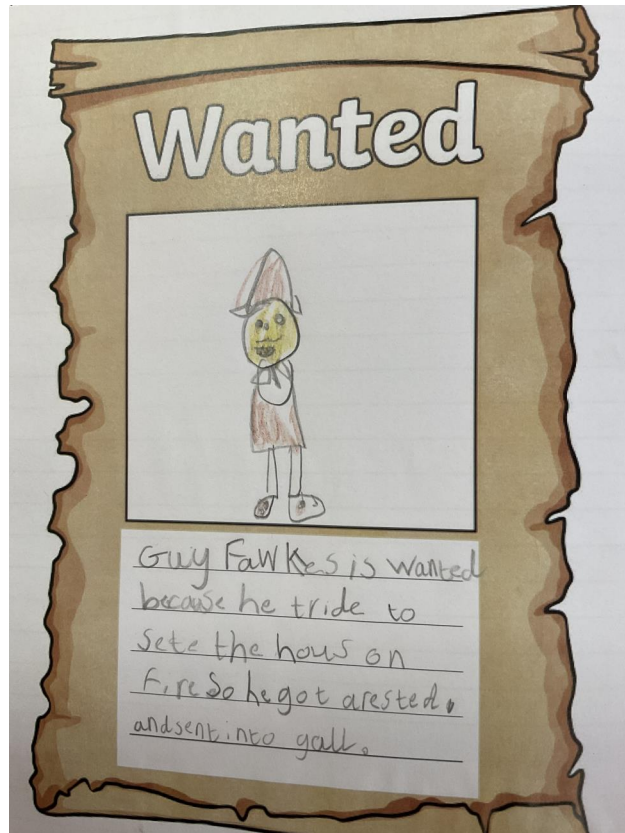 Wanted
Guy Fawkes is wanted
because he tride to
sete the hous on
fire So he got arested.
and sent into gall.